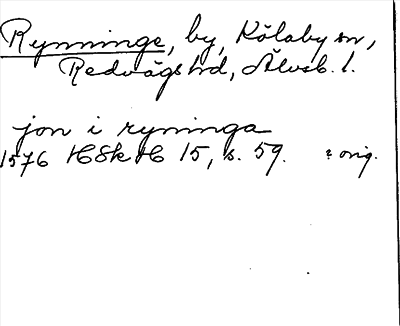 Rynninge, by, Kölaby sn,
Redvägs hd, Älvsb. l.
jon i ryninga
1576 HSkH 15, s. 59. ? orig.